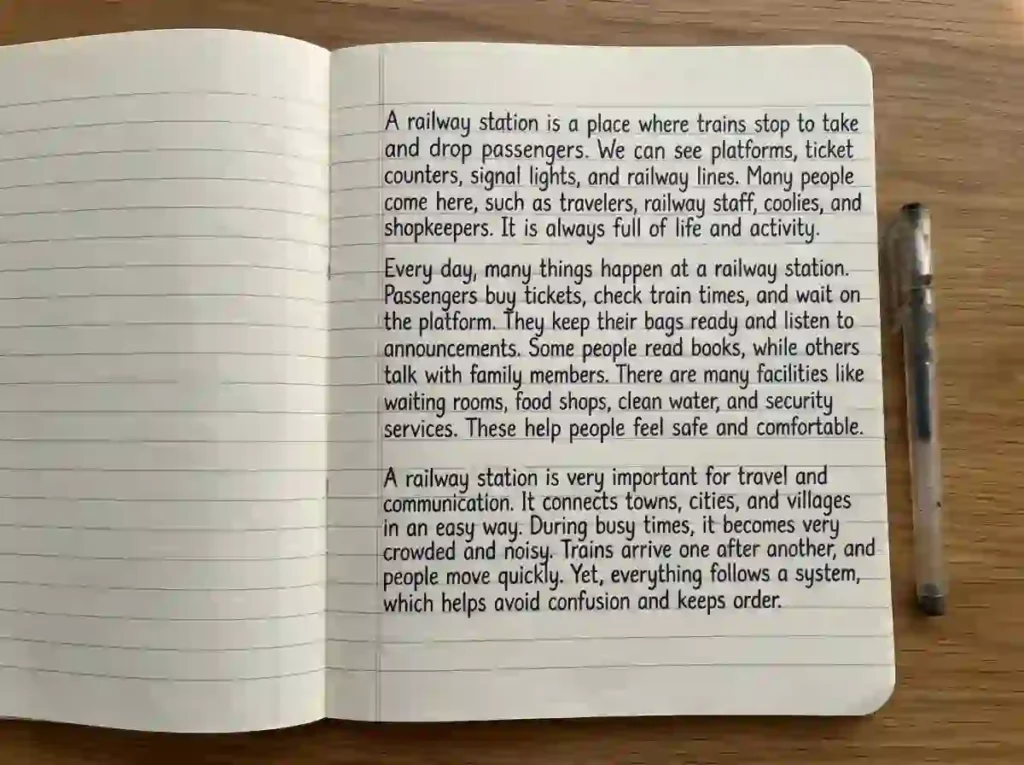 A railway station is a place where trains stop to take
and drop passengers. We can see platforms, ticket
counters, signal lights, and railway lines. Many people
come here, such as travelers, railway staff, coolies, and
shopkeepers. It is always full of life and activity.
Every day, many things happen at a railway station.
Passengers buy tickets, check train times, and wait on
the platform. They keep their bags ready and listen to
announcements. Some people read books, while others
talk with family members. There are many facilities like
waiting rooms, food shops, clean water, and security
services. These help people feel safe and comfortable.
A railway station is very important for travel and
communication. It connects towns, cities, and villages
in an easy way. During busy times, it becomes very
crowded and noisy. Trains arrive one after another, and
people move quickly. Yet, everything follows a system,
which helps avoid confusion and keeps order.